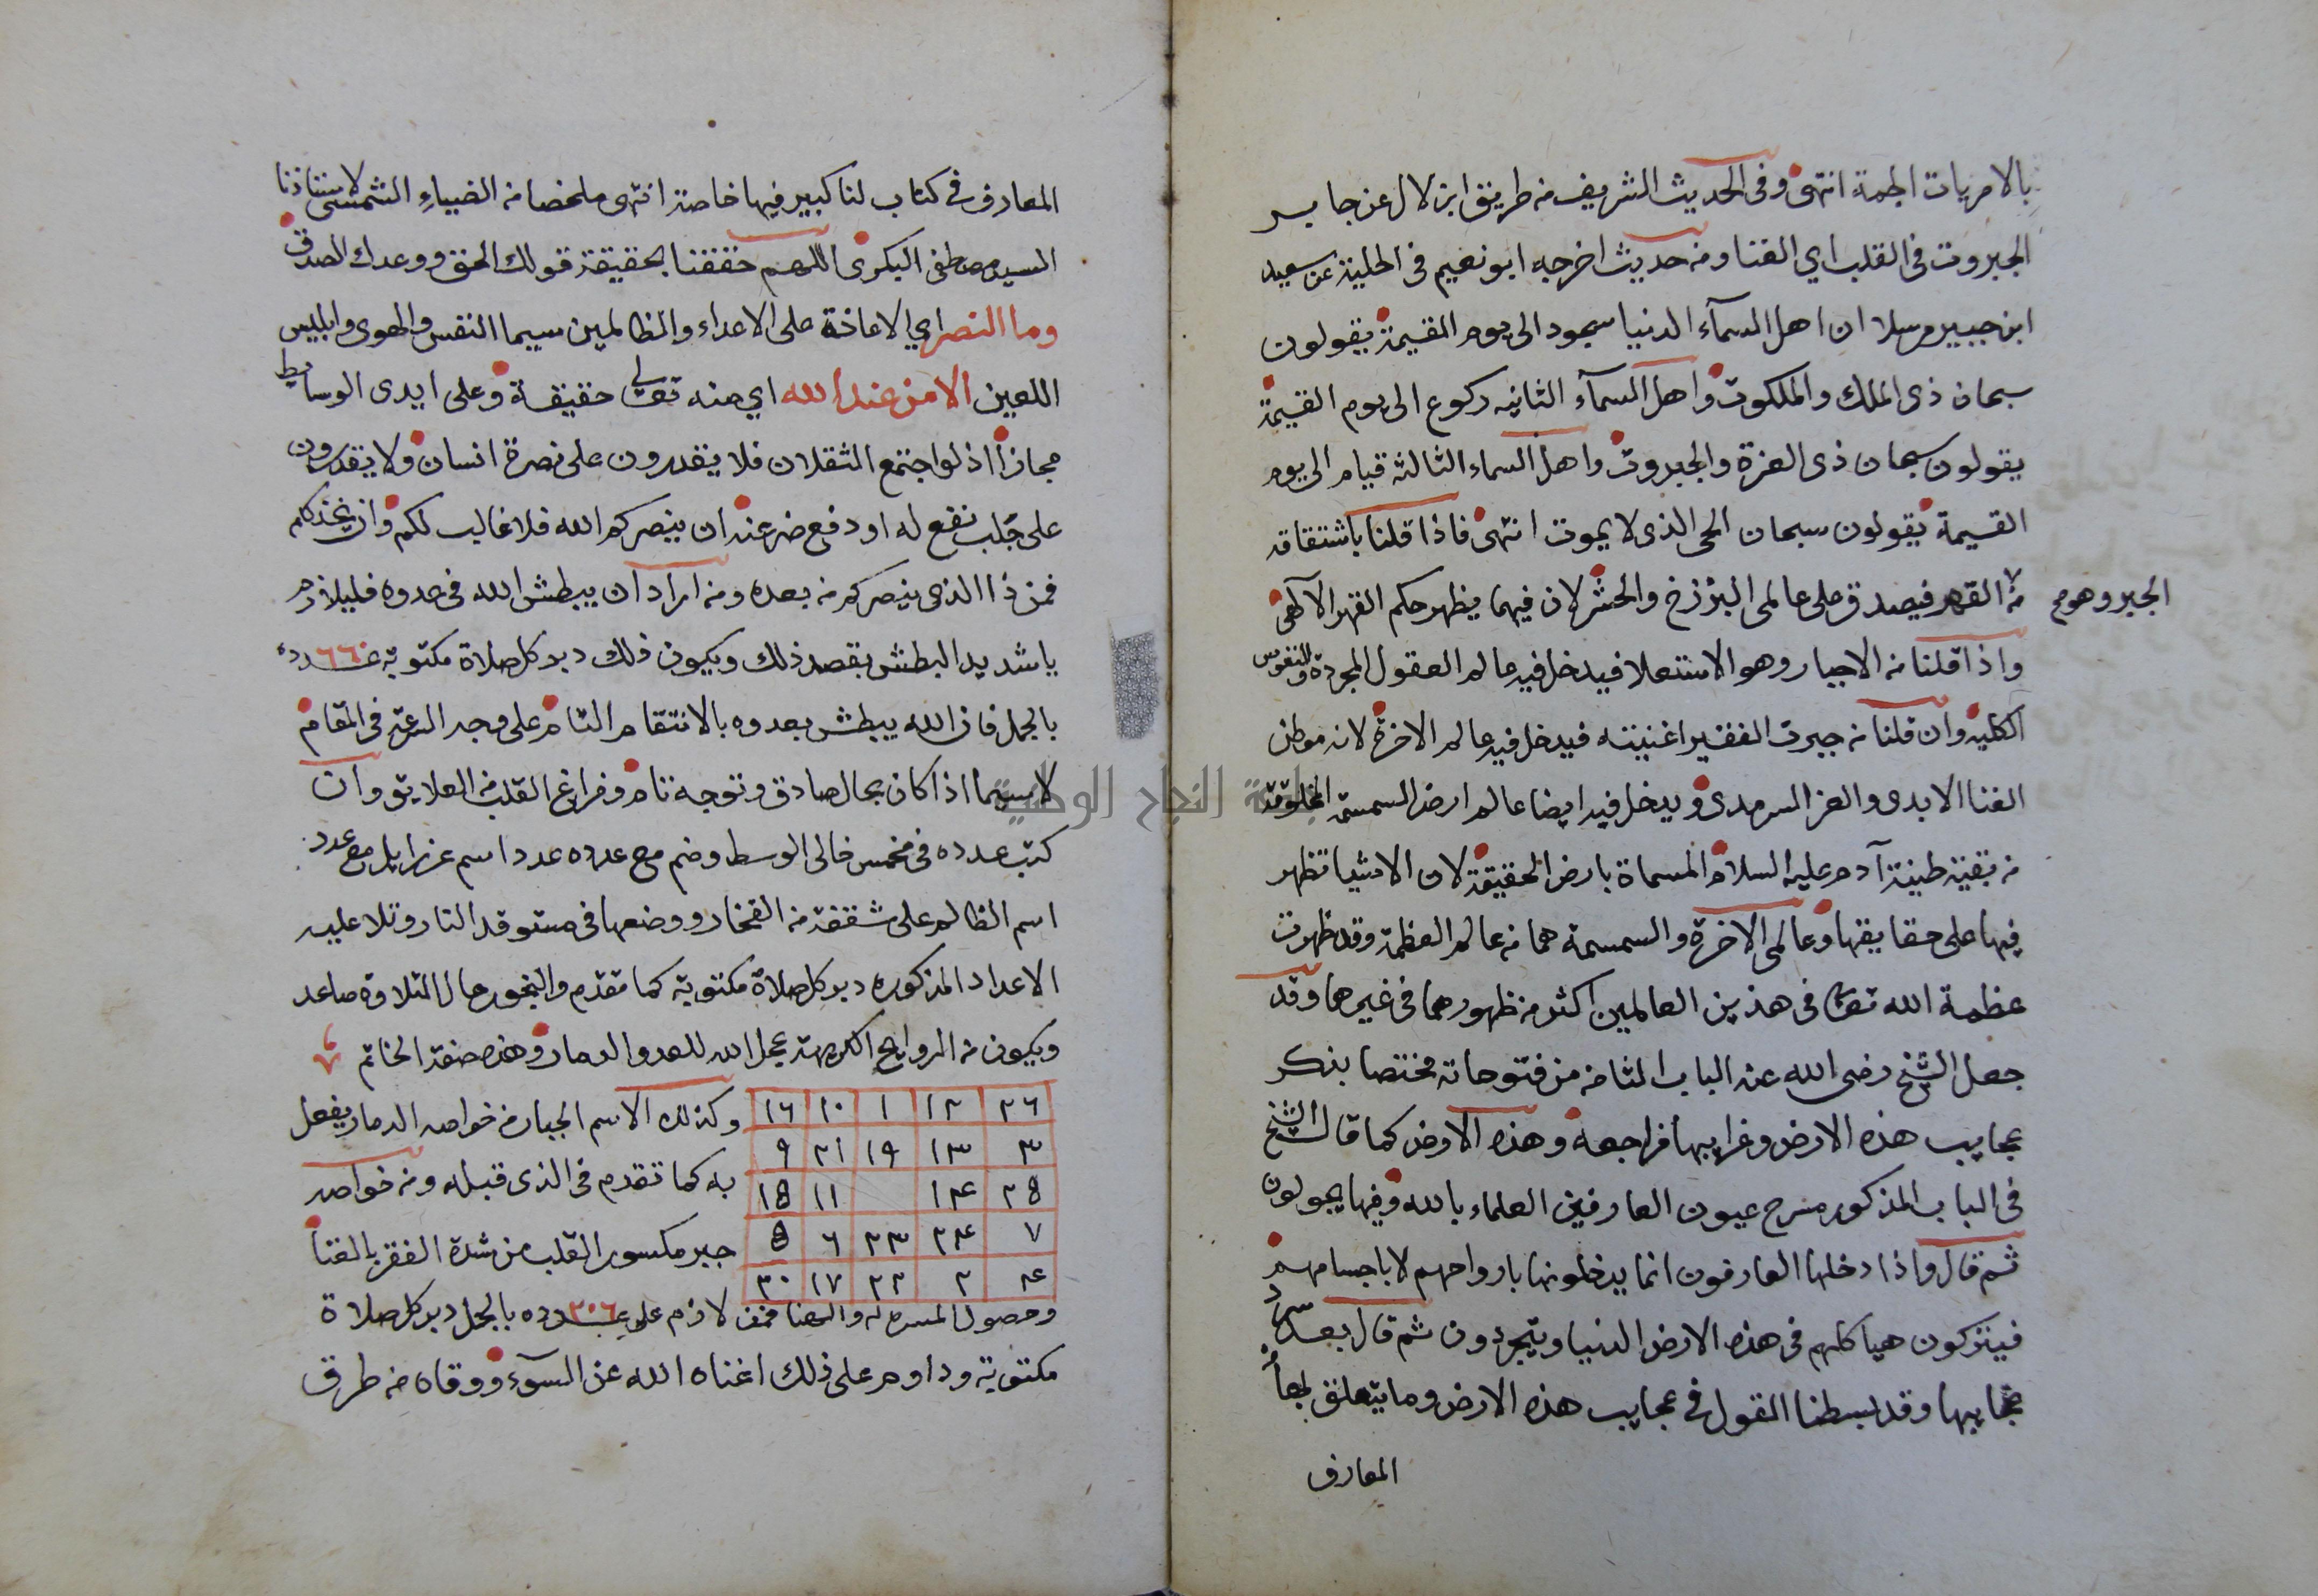 بالامريات الجمة انتهى وفى الحديث الشريف من طريق ابن لال عن جابر
الجبروت فى القلب اي الغنا ومن حديث اخرجه ابو نعيم فى الحلية عن سعيد
ابن جبير مرسلا ان اهل السمآء الدنيا سجود الى يوم القيمة يقولون
سبحان ذى الملك والملكوت واهل السمآء الثانيه ركوع الى يوم القيمة
يقولون سبحان ذى العزة والجبروت واهل السماء الثالثه قيام الى يوم
القيمة يقولون سبحان الحى الذى لا يموت انتهى فاذا قلنا باشتقاقه
من القهر فيصدق على عالمى البرزخ والحشر لان فيهما يظهر حكم القهر الالهى
الجبر وهو
واذا قلنا من الاجبار وهو الاستعلا فيدخل فيه عالم العقول المجردة والنفوس
الكليه وان قلنا من جبرت الفقير اغنيته فيدخل فيه عالم الاخرة لانه موطن
الغنا الابدى والعز السرمدى ويدخل فيه ايضا عالم ارض السمسمة المخلوقة
من بقية طينة آدم عليه السلام المسماة بارض الحقيقة لان الاشيا تظهر
فيها على حقايقها وعالمى الاخرة والسمسمة هما من عالم العظمة وقد ظهرت
عظمة الله تعالى فى هذين العالمين اكثر من ظهورهما فى غيرهما وقد
جعل الشيخ رضى الله عنه الباب الثامن من فتوحاته مختصا بذكر
عجايب هذه الارض وغرايبها فراجعه وهذه الارض كما قال الشيخ
فى الباب المذكور مسرح عيون العارفين العلماء بالله وفيها يجولون
ثم قال واذا دخلها العارفون انما يدخلونها بارواحهم لا باجسامهم
فيتركون هياكلهم فى هذه الارض الدنيا ويتجردون ثم قال بعد سرد
عجايبها وقد بسطنا القول فى عجايب هذه الارض وما يتعلق بها من
المعارف
المعارف فى كتاب لنا كبير فيها خاصة انتهى ملخصا من الضياء الشمسى لاستاذنا
السيد مصطفى البكرى اللهم حققنا بحقيقة قولك الحق ووعدك الصدق
وما النصر اي الاعانة على الاعداء والظالمين سيما النفس والهوى وابليس
اللعين الا من عند الله اي منه تعالى حقيقة وعلى ايدى الوسايط
مجازا اذ لو اجتمع الثقلان فلا يقدرون على نصرة انسان ولا يقدرون
على جلب نفع له او دفع ضر عنه ان ينصركم الله فلا غالب لكم وان يخذلكم
فمن ذا الذى ينصركم من بعده ومن اراد ان يبطش الله فى عدوه فليلازم
يا شديد البطش بقصد ذلك ويكون ذلك دبر كل صلاة مكتوبة عدد ٦٦٠
بالجمل فان الله يبطش بعدوه بالانتقام التام على وجه السرعة فى المقام
لا سيما اذا كان بحال صادق وتوجه تام وفراغ القلب من العلايق وان
كتب عدده فى مخمس خالى الوسط وضم مع عدده عدد اسم عزرايل مع عدد
اسم الظالم على شقفة من الفخار ووضعها فى مستوقد النار وتلا عليه
الاعداد المذكوره دبر كل صلاة مكتوبة كما تقدم والبخور حال التلاوة صاعد
ويكون من الروايح الكريهة عجل الله للعدو الدمار وهذه صفة الخاتم
٢٦ ١٢ ١ ١٠ ١٦
٣ ١٣ ١٩ ٢١ ٩
٢٥ ١٤ ١١ ١٥
٧ ٢٤ ٢٣ ٦ ٥
٤ ٢ ٢٢ ١٧ ٢٠
وكذلك الاسم الجبار من خواصه الدمار يفعل
به كما تقدم فى الذى قبله ومن خواصه
جبر مكسور القلب من شدة الفقر بالغنا
وحصول المسره له والهنا فمن لازم على عدده ٢٠٦ بالجمل دبر كل صلاة
مكتوبة وداوم على ذلك اغناه الله عن السوء ووقاه من طرق
جامعة النجاح الوطنية